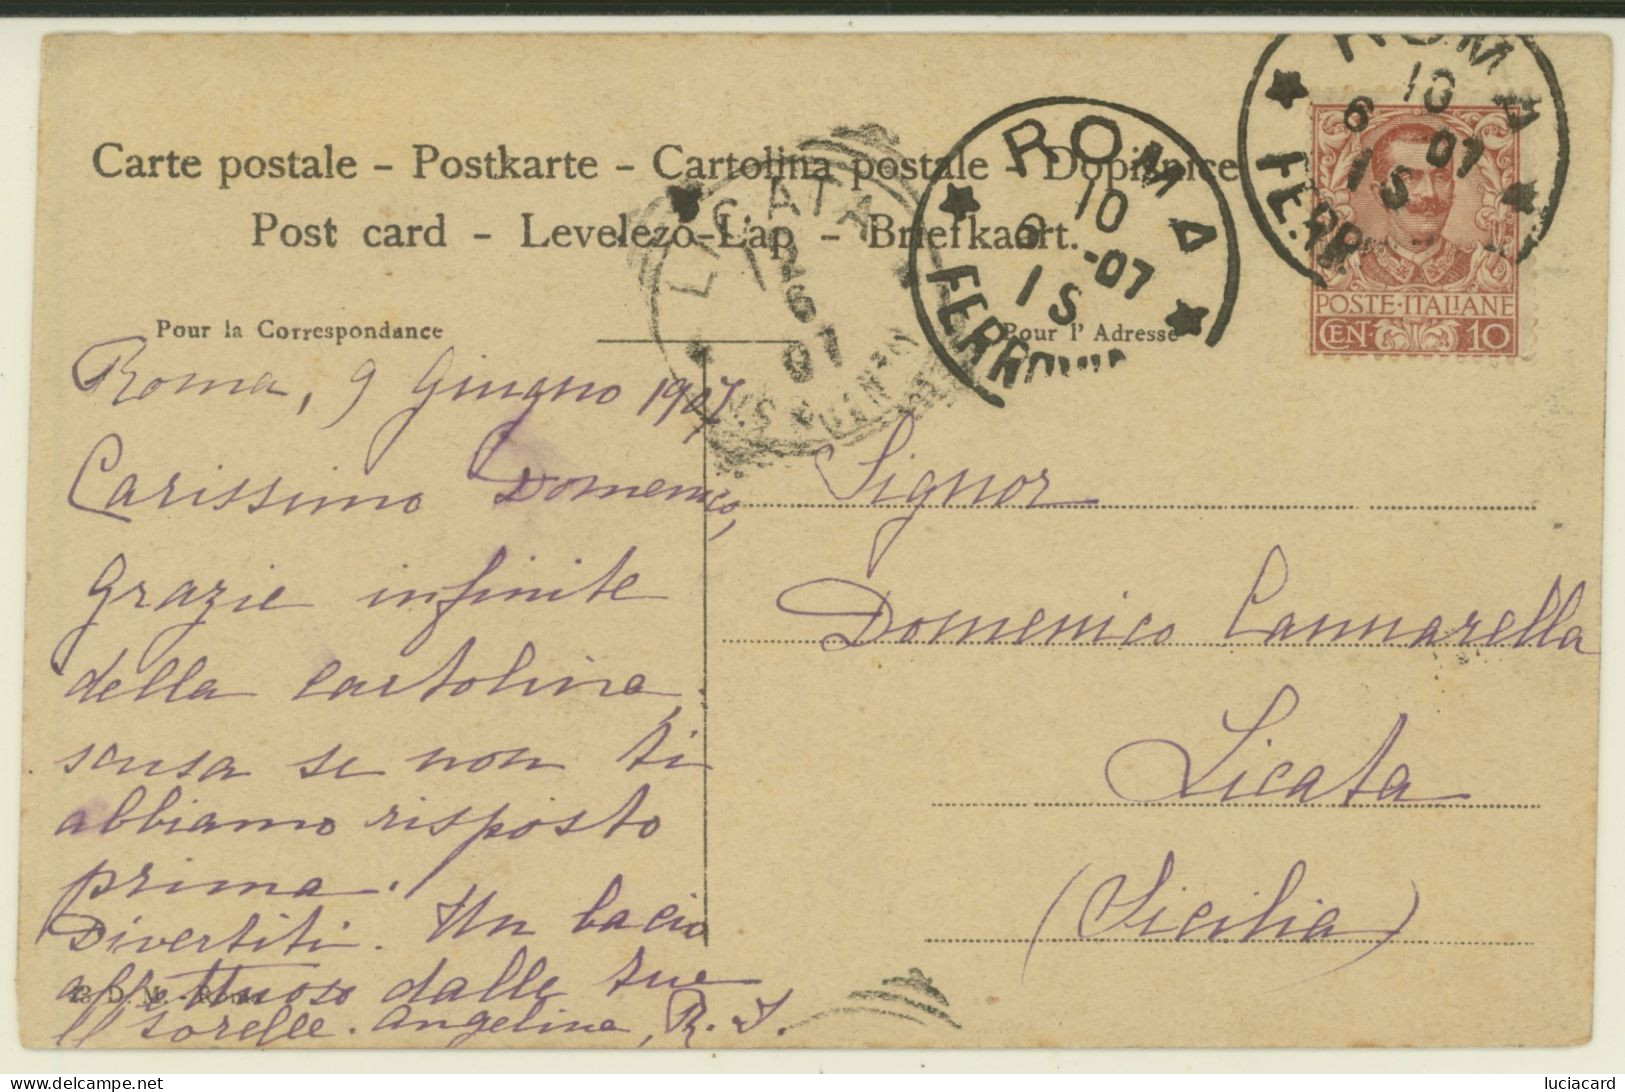 Carte postale – Postkarte – Cartolina postale – Dopisnice
Post card – Levelezö-Lap – Briefkaart.
ROMA
FERROVIA
10
6 -07
1 S
ROMA
FERR
10
6 07
1 S
LICATA
12 6 07
POSTE·ITALIANE
CEN· 10
Pour la Correspondance
Pour l'Adresse
Roma, 9 Giugno 1907
Carissimo Domenico,
Grazie infinite
della cartolina,
scusa se non ti
abbiamo risposto
prima.
Divertiti. Un bacio
affettuoso dalle tue
sorelle. Angelina, R. I.
Signor
Domenico Cannarella
Licata
(Sicilia)
luciacard